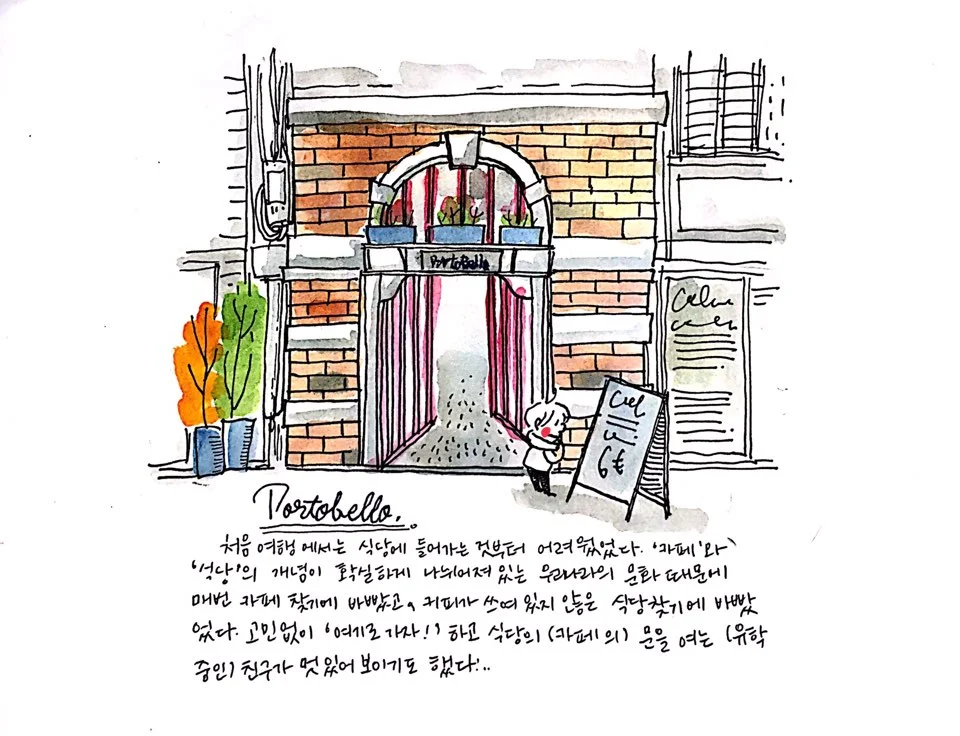 Portobello
6€
Portobello.
처음 여행에서는 식당에 들어가는 것부터 어려웠었다. '카페'와
'식당'의 개념이 확실하게 나뉘어져 있는 우리나라의 문화 때문에
매번 카페 찾기에 바빴고, 커피가 쓰여 있지 않은 식당찾기에 바빴
었다. 고민없이 '여기로 가자!' 하고 식당의 (카페의) 문을 여는 (유학
중인) 친구가 멋있어 보이기도 했다!..